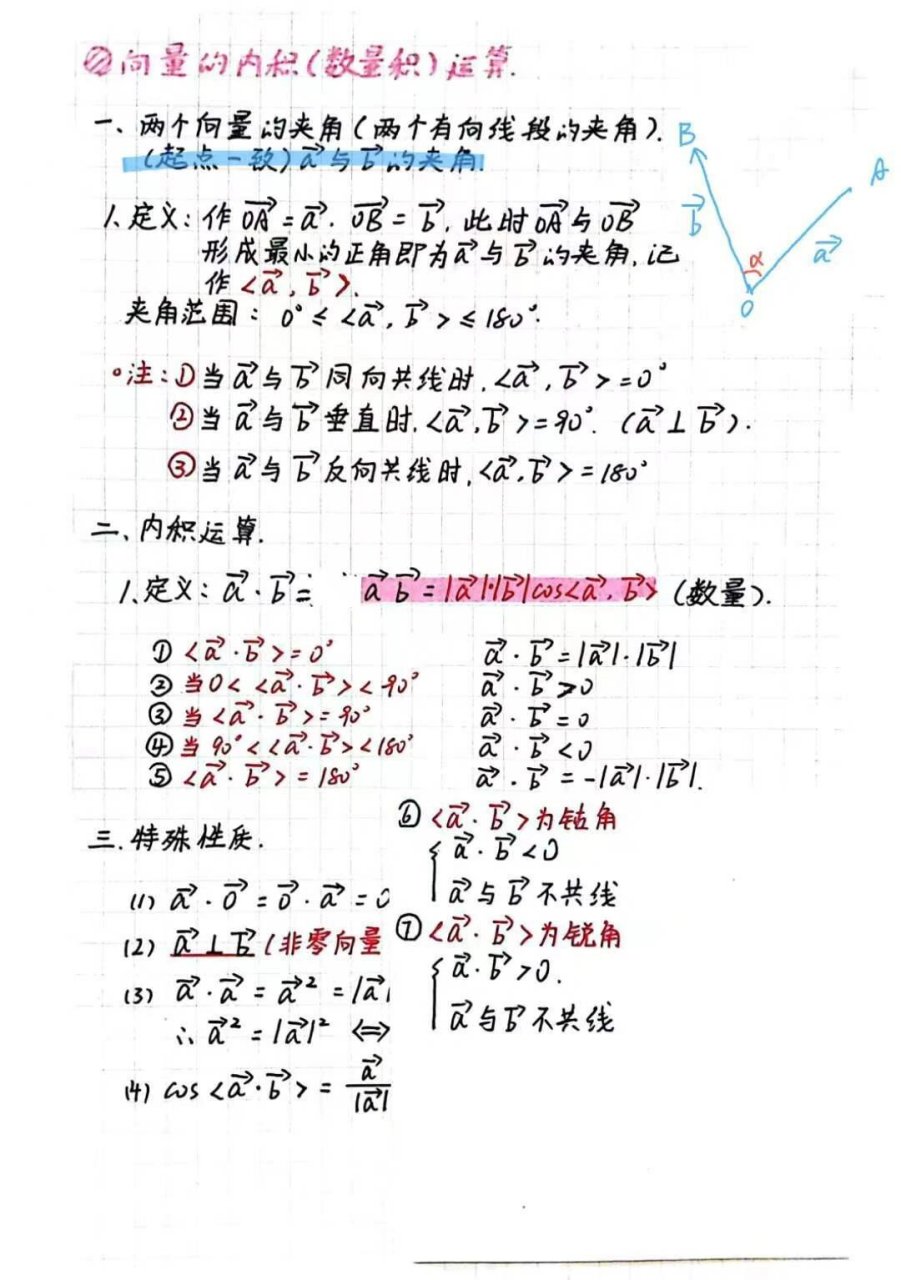 ②向量的内积(数量积)运算.
一、两个向量的夹角(两个有向线段的夹角).
(起点一致) a⃗与b⃗的夹角.
B
A
b⃗
a⃗
α
O
1.定义:作OA⃗=a⃗. OB⃗=b⃗,此时OA⃗与OB⃗
形成最小的正角即为a⃗与b⃗的夹角,记
作<a⃗,b⃗>.
夹角范围: 0°≤<a⃗,b⃗>≤180°.
注:①当a⃗与b⃗同向共线时,<a⃗,b⃗>=0°
②当a⃗与b⃗垂直时,<a⃗,b⃗>=90°. (a⃗⊥b⃗).
③当a⃗与b⃗反向共线时,<a⃗,b⃗>=180°
二、内积运算.
1.定义:a⃗·b⃗= a⃗ b⃗=|a⃗|·|b⃗|cos<a⃗,b⃗> (数量).
①<a⃗·b⃗>=0° a⃗·b⃗=|a⃗|·|b⃗|
②当0<<a⃗·b⃗><90° a⃗·b⃗>0
③当<a⃗·b⃗>=90° a⃗·b⃗=0
④当90°<<a⃗·b⃗><180° a⃗·b⃗<0
⑤<a⃗·b⃗>=180° a⃗·b⃗=-|a⃗|·|b⃗|.
⑥<a⃗·b⃗>为钝角
{a⃗·b⃗<0
a⃗与b⃗不共线
⑦<a⃗·b⃗>为锐角
{a⃗·b⃗>0.
a⃗与b⃗不共线
三.特殊性质.
(1) a⃗·0⃗=0⃗·a⃗=0
(2) a⃗⊥b⃗(非零向量
(3) a⃗·a⃗=a⃗²=|a⃗|
∴a⃗²=|a⃗|² ⇔
(4) cos<a⃗·b⃗>=a⃗/|a⃗|